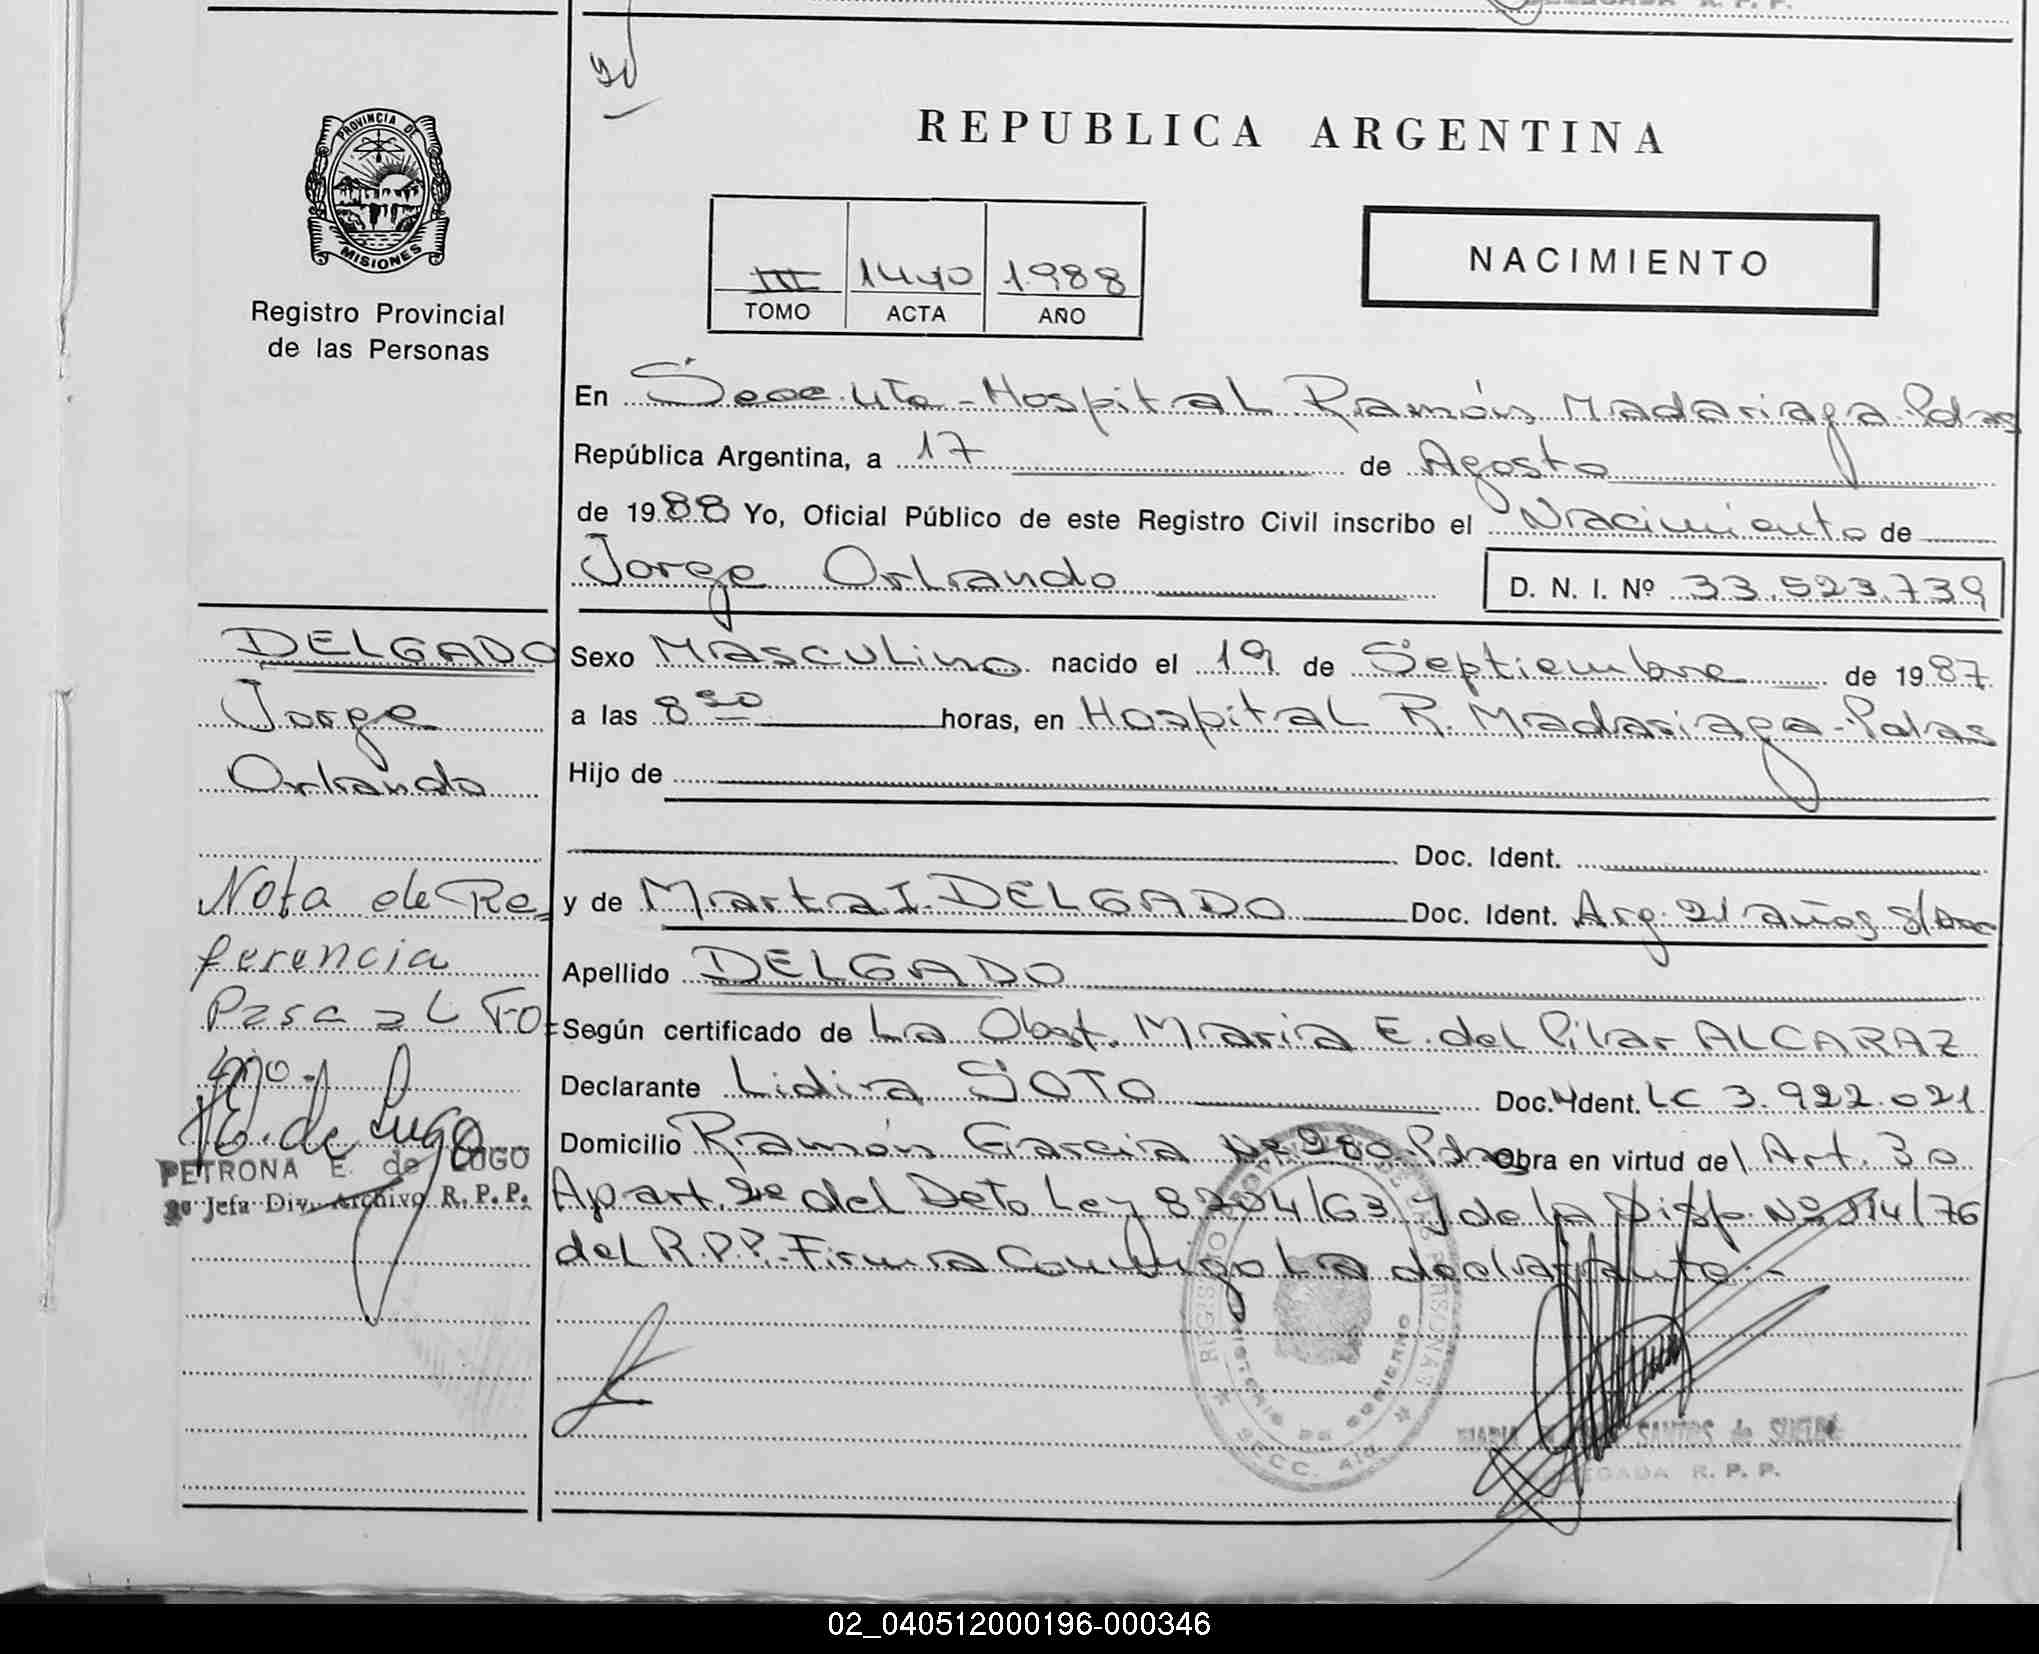 PROVINCIA DE
MISIONES
Registro Provincial
de las Personas
REPUBLICA ARGENTINA
III 1440 1988
TOMO ACTA AÑO
NACIMIENTO
En Secc. 4ta - Hospital Ramón Madariaga. Pdas
República Argentina, a 17 de Agosto
de 1988 Yo, Oficial Público de este Registro Civil inscribo el Nacimiento de
Jorge Orlando D. N. I. Nº 33.523.739
DELGADO
Jorge
Orlando
Sexo Masculino nacido el 19 de Septiembre de 1987
a las 8 30 horas, en Hospital R. Madariaga - Pdas
Hijo de
Doc. Ident.
y de Marta I. DELGADO Doc. Ident. Arg. 21 años s/Doc
Apellido DELGADO
Según certificado de La Obst. María E. del Pilar ALCARAZ
Declarante Lidia SOTO Doc. Ident. LC 3.922.021
Domicilio Ramón García Nº 280. Pdas Obra en virtud del Art. 30
Apart. 2º del Dcto Ley 8204/63 y de la Disp. Nº 514/76
del R.P.P. Firma Conmigo La declarante.-
Nota de Re=
ferencia
Pasa al Fo=
lio.
E. de Lugo
PETRONA E. de LUGO
Jefa Div. Archivo R.P.P.
REGISTRO PERSONAS
MINISTERIO DE GOBIERNO
SECC. 4ta
MARIA SANTOS de
DELEGADA R. P. P.
02_040512000196-000346